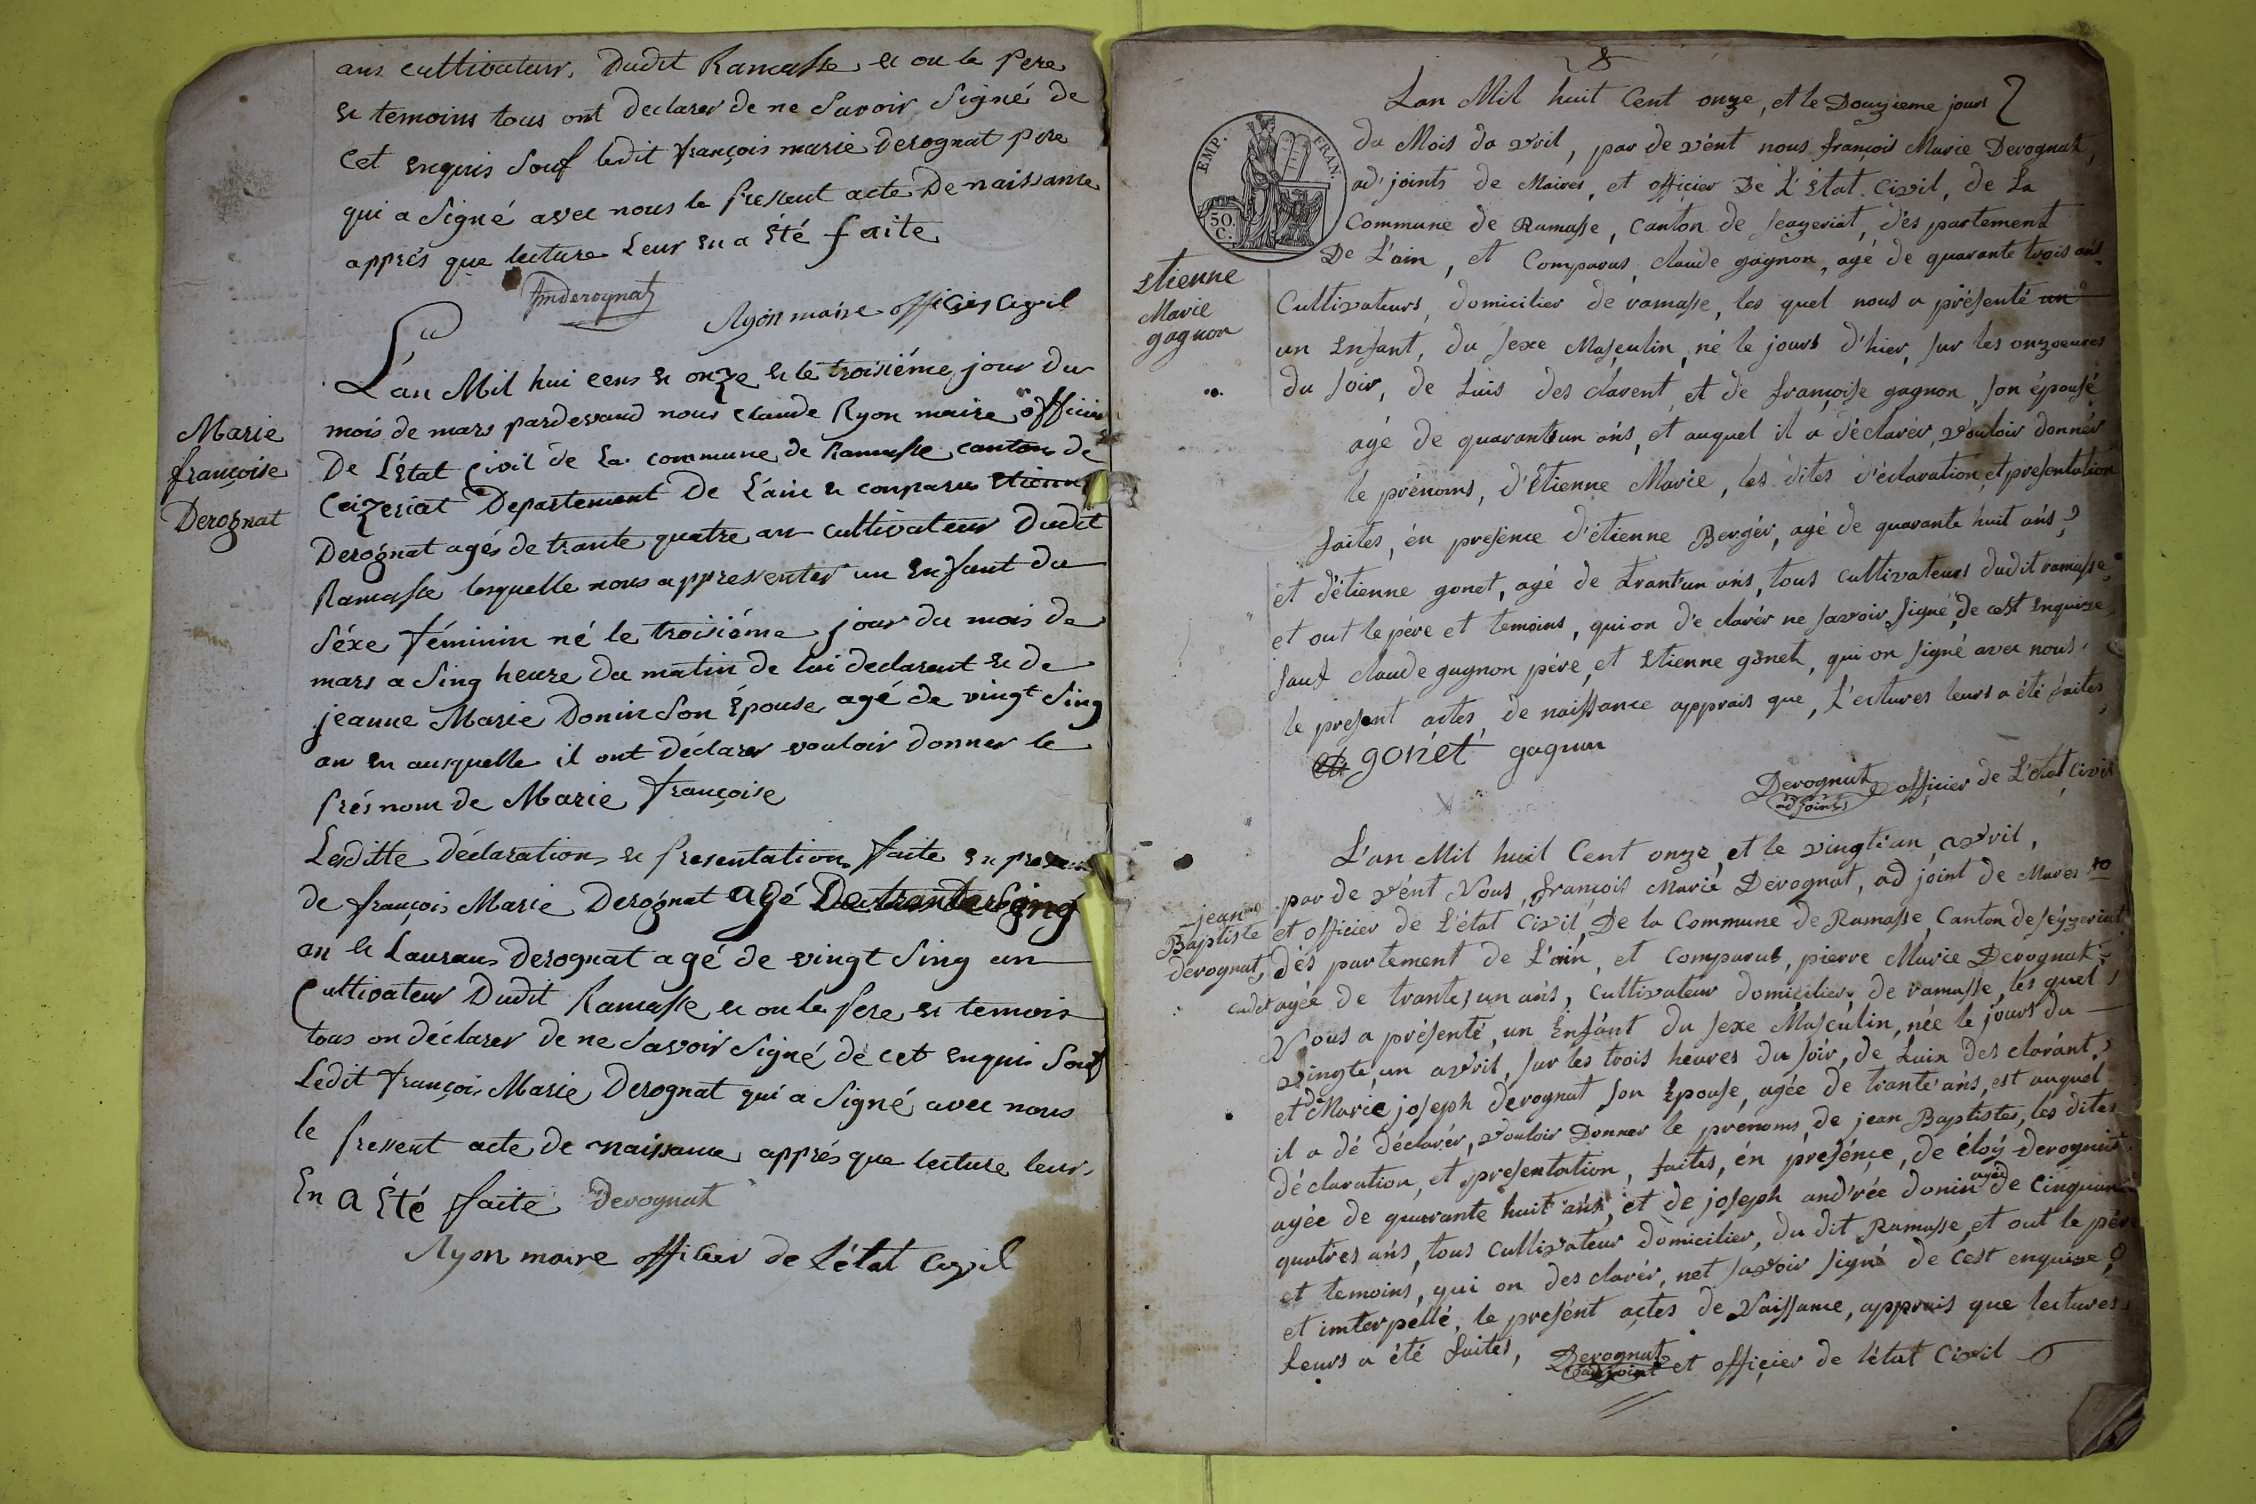 ans cultivateur, Dudit Ramasse et on le pere
et temoins tous ont declarer de ne Savoir Signé de
Cet enquis Souf ledit françois marie Derognat pere
qui a Signé avec nous le present acte De naissance
apprés que lecture Leur en a été faite
fmderognat
Ryon maire officier civil
L'an Mil hui cens et onze et le troisiéme jour du
mois de mars pardevand nous claude Ryon maire officier
De L'état Civil de La commune de Ramasse canton de
Ceizeriat Departement De L'ain et comparu etienne
Derognat agés de trante quatre an cultivateur Dudit
Ramasse lesquelle nous a appresenter un enfant du
Séxe féminin né le troisiéme jour du mois de
mars a Sing heure du matin de lui declarent et de
jeanne Marie Donin Son épouse agé de vingt Sing
an en ausquelle il ont déclarer vouloir donner le
prés nom de Marie françoise
Marie
françoise
Derognat
Lesditte déclaration et presentation faite en
de françois Marie Derognat agé De trante Sing
an et Laurans Derognat agé de vingt Sing an
Cultivateur Dudit Ramasse et on le pere et temois
tous on déclarer de ne Savoir Signé de cet enquis Souf
Ledit françois Marie Derognat qui a Signé avec nous
le pressent acte de naissance apprés que lecture leur
En a été faite Derognat
Ryon maire officier de L'état civil
8
Lan Mil huit Cent onze, et le Douzieme jours
du Mois da vril, par de vént nous françois Marie Derognat,
ad'joints de Maires, et officier De L'état Civil, de La
Commune de Ramasse, Canton de seyzeriat, dés partement
De L'ain, et Comparus, claude gagnon, agé de quarante trois ans
Cultivateurs, domicilier de ramasse, les quel nous a présenté un
un Enfant, du sexe Masculin, né le jours d'hier, sur les onzoeures
du soir, de Luis des clarent, et de françoise gagnon, son épousé
agé de quarantun ans, et auquel il a déclarér, vouloir donnér
le prénoms, d'Etienne Marie, les dites d'éclaration, et presentation
faites, én presence d'étienne Bergér, agé de quarante huit ans,
et d'étienne gonet, agé de trant'un ans, tous cultivateurs dudit ramasse
et out le pére et temoins, qui on d'e clarér ne savoir signé, de cest enquise,
sauf claude gagnon pére, et etienne gonet, qui on signé avec nous
le present actes, de naissance apprais que, L'ectures leurs a été faites
EMP. FRAN.
50 C.
etienne
Marie
gagnon
gonet gagnon
Derognat officier de L'état Civil
adjoint
L'an Mil huit Cent onze, et le vingt'un, avril,
par de vént Nous, françois Marie Derognat, ad joint de Maires
et officier de L'état Civil, De la Commune de Ramasse, Canton de seyzeriat
dés partement de L'ain, et Comparus, pierre Marie Derognat,
agée de trante, un ans, Cultivateur domicilier, de ramasse, les quel
Nous a présenté, un Enfant du sexe Masculin, née le jours du
vingte, un avril, sur les trois heures du soir, de Luin des clarant,
et de Marie joseph derognat son Epouse, agée de trante ans, est auquel
il a dé déclarér, vouloir Donner le prénoms, de jean Baptistes, les dites
déclaration, et presentation, faites, én présénce, de éloy derognat
agée de quarante huit ans, et de joseph and'rée donin agée de Cinquante
quatres ans, tous Cultivateur domicilier, du dit Ramasse, et out le pére
et temoins, qui on des clarér, net savoir signé de Cest enquise,
et imterpellé, le présént actes de Naissance, apprais que lectures
leurs a été faites, Derognat et officier de létat Civil
adjoint
jean
Baptiste
derognat,
cadet